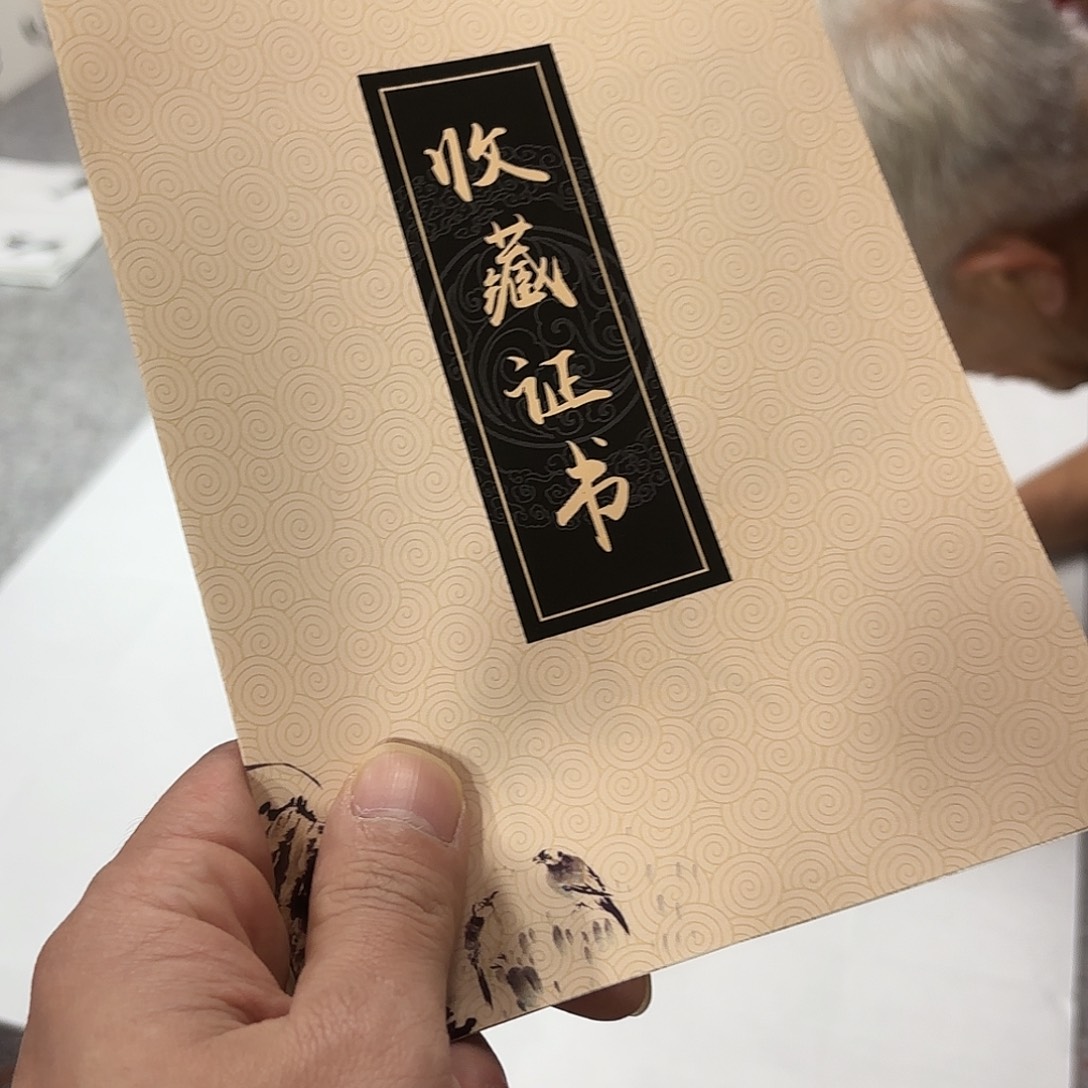 收藏证书